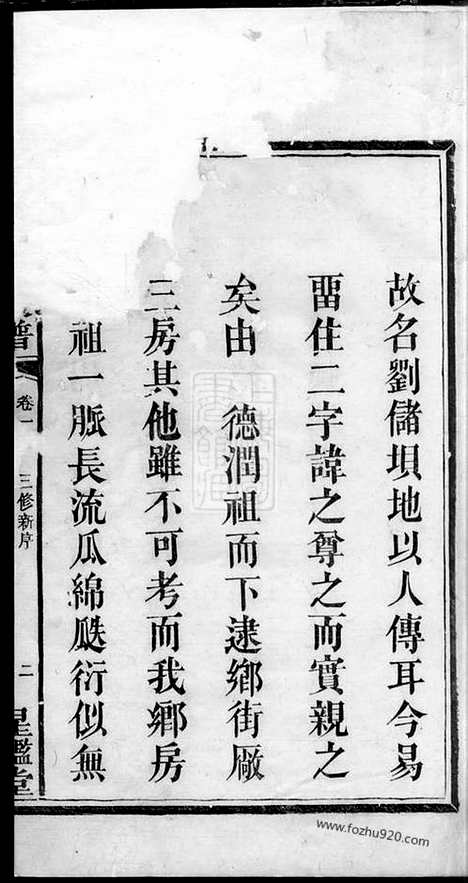 故名劉儲垻地以人傳耳今易
畱住二字諱之尊之而實親之
矣由　德潤祖而下逮鄉街廠
三房其他雖不可考而我鄉房
祖一脈長流瓜綿瓞衍似無
譜
卷一
三修新序
二
星鑑堂
www.fozhu920.com